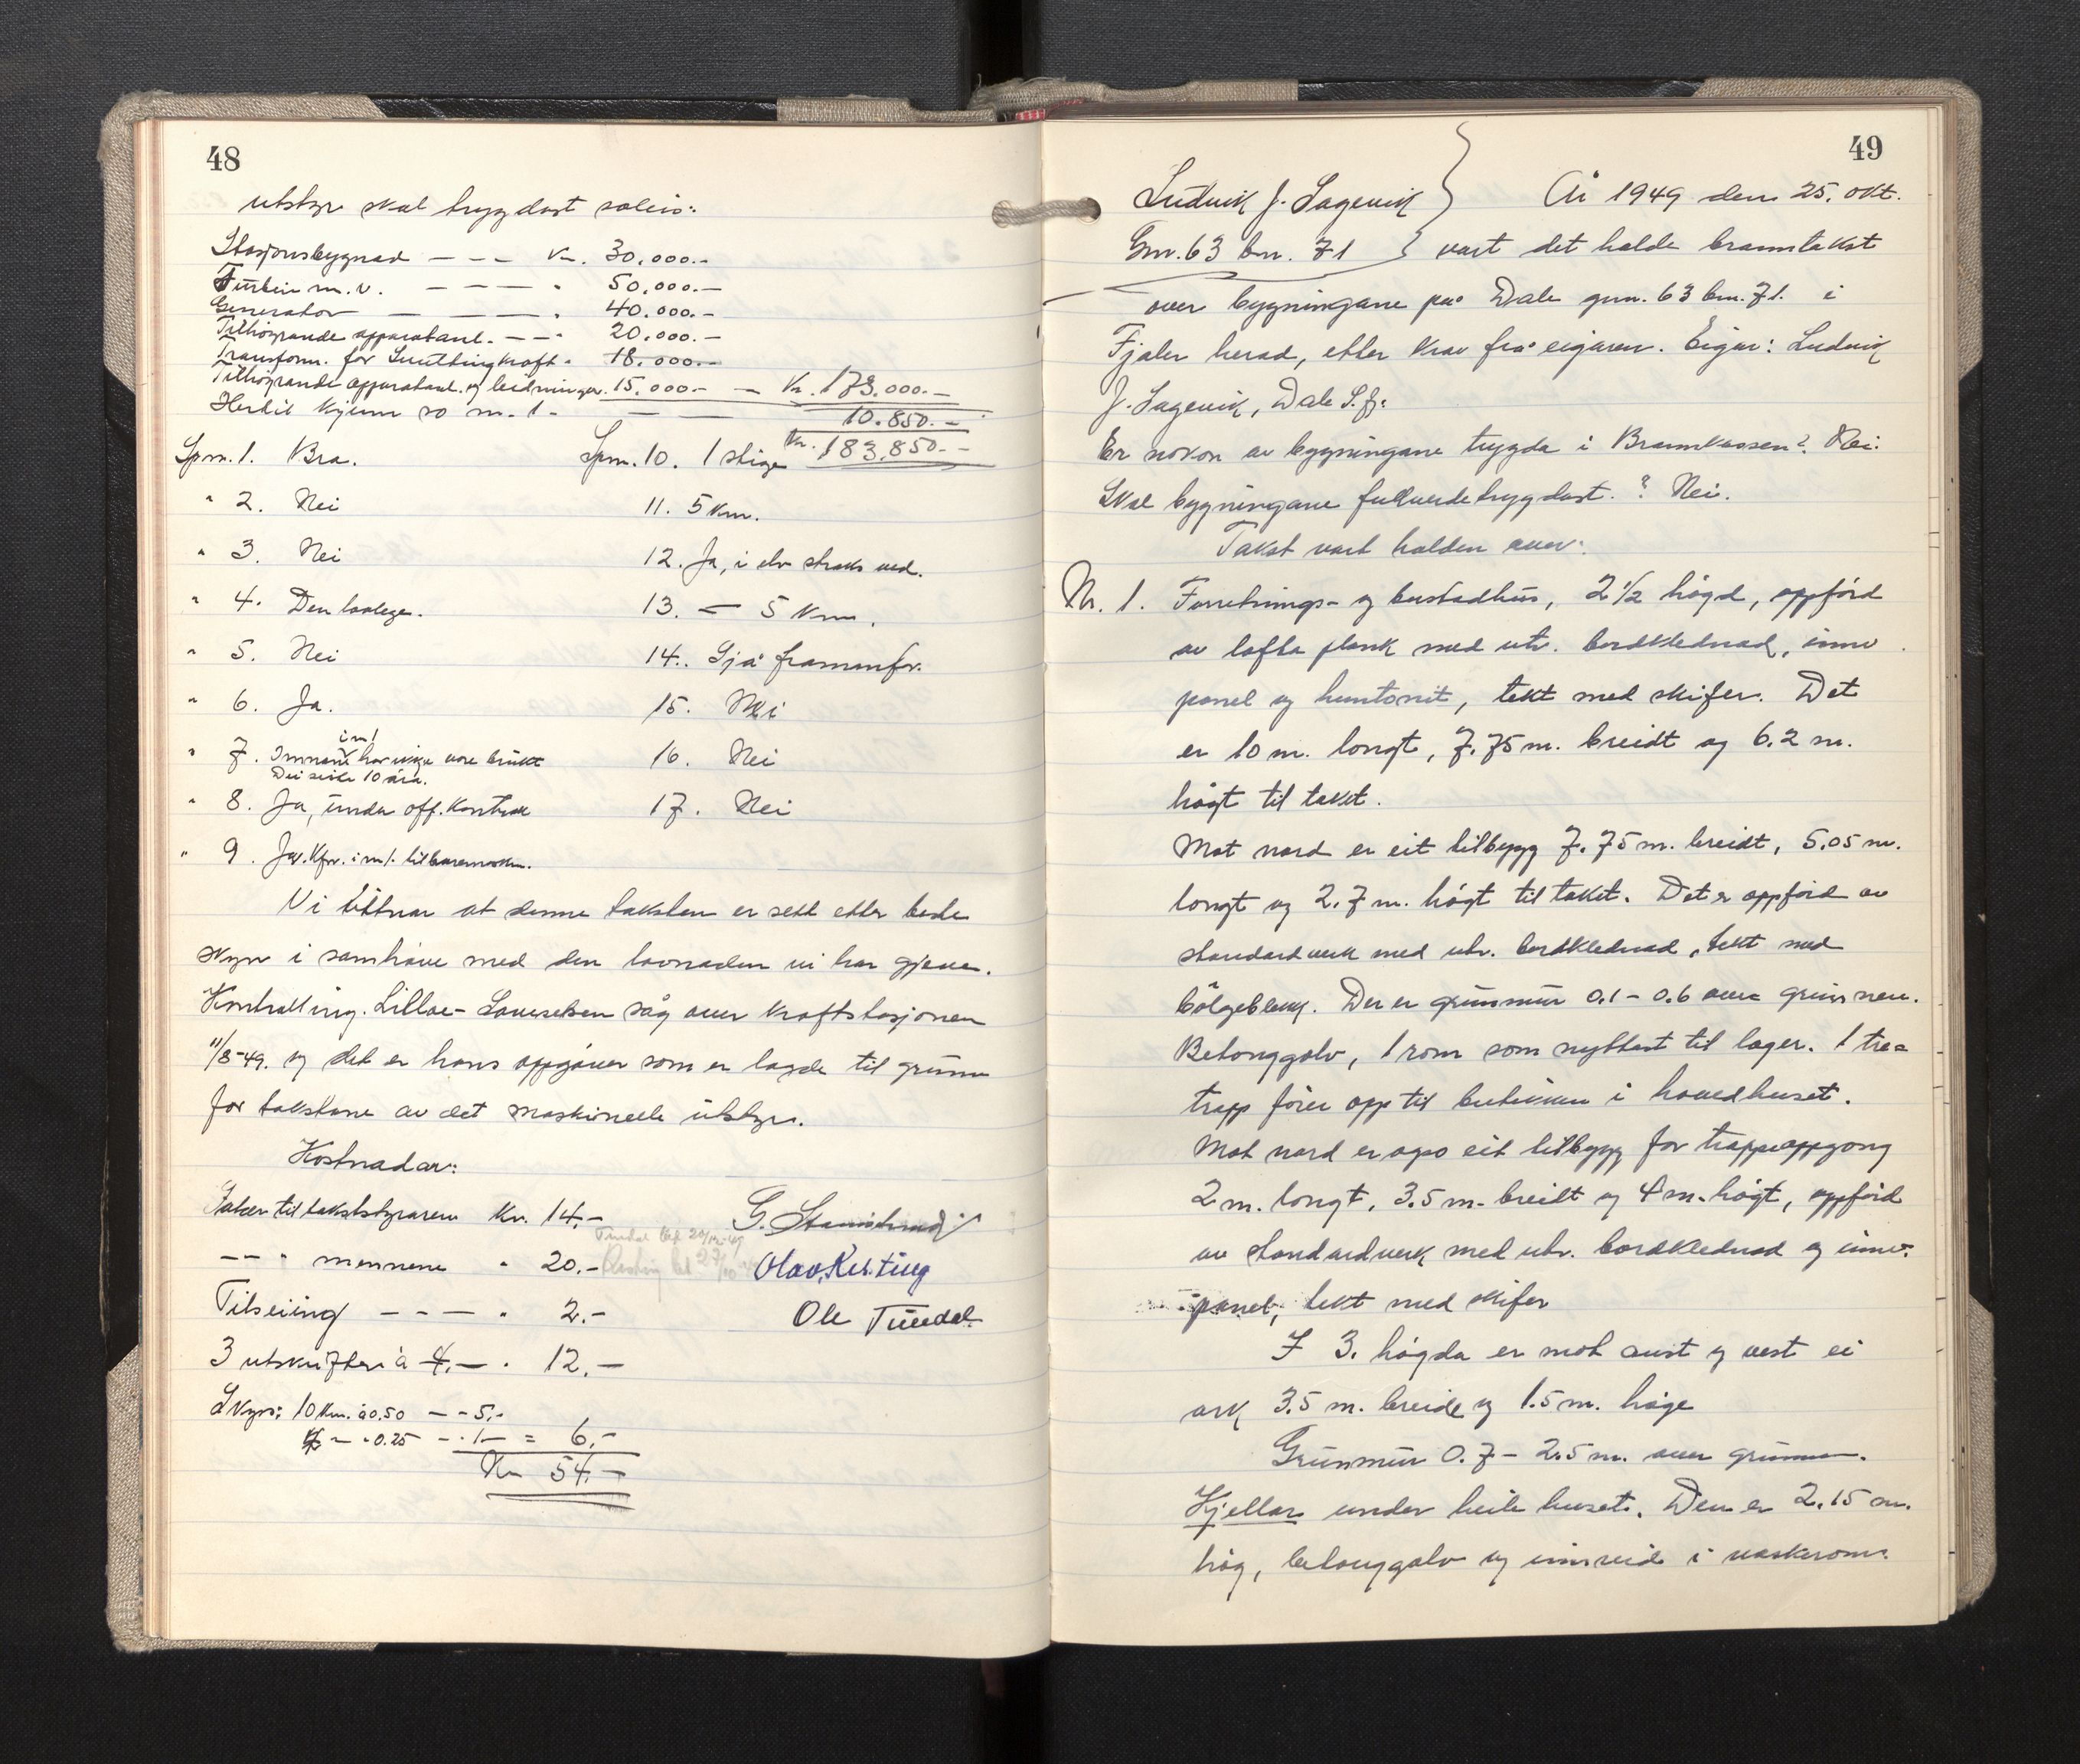 48
utstyr skal trygdast soleis:
Stasjonsbygnad - - - kr. 30.000.-
Turbin m.v. - - - - " 50.000.-
Generator - - - - " 40.000.-
Tilhøyrande apparatanl. - - - " 20.000.-
Transform. for Smeltingkraft - " 18.000.-
Tilhøyrande apparatanl. og leidninger. 15.000.- - Kr. 173.000.-
Hertil kjem so nr. 1 - - - 10.850.-
Kr. 183.850.-
Spm. 1. Bra. Spm. 10. 1 stige
" 2. Nei 11. 5 km.
" 3. Nei 12. Ja, i elv straks ved.
" 4. Den lovlege. 13. - 5 km.
" 5. Nei 14. Sjå framanfor.
" 6. Ja. 15. Nei
" 7. har ikkje vore brukt 16. Nei
Dei siste 10 åra.
" 8. Ja, under off. Kontroll 17. Nei
" 9. Ja.
Vi vitnar at denne taksten er sett etter beste
skyn i samhøve med den lovnaden vi har gjeve.
Kontrolling. Lilloe- såg over kraftstasjonen
11/8-49. og det er hans oppgåver som er lagde til grunn
for takstane av det maskinelle utstyr.
Kostnadar:
Salær til takststyraren Kr. 14.-
- - " mennene " 20.-
Tilseiing - - - " 2.-
3 utskrifter à 4.- " 12.-
Skyss: 10 km. à 0.50 - - 5.-
- " 0.25 - - 1.- = 6.-
Kr 54.-
Olav Kursting
Ole Tundal
49
Ludvik J. Sagevik År 1949 den 25. okt.
Gnr. 63 bnr. 71 vart det halde branntakst
over bygningane på Dale gnr. 63 bnr. 71. i
Fjaler herad, etter krav frå eigaren. Eigar: Ludvik
J. Sagevik, Dale S.fj.
Er nokon av bygningane trygda i Brannkassen? Nei.
Skal bygningane fullverdetrygdast.? Nei.
Takst vart halden over:
Nr. 1. Forretnings- og bustadhus, 2 1/2 høgd, oppførd
av lafta plank med utv. bordklednad, innv.
panel og huntonit, tekt med skifer. Det
er 10 m. langt, 7.75 m. breidt og 6.2 m.
høgt til taket.
Mot nord er eit tilbygg 7.75 m. breidt, 5.05 m.
langt og 2.7 m. høgt til taket. Det er oppførd av
standardverk med utv. bordklednad, tekt med
bølgeblekk. Der er grunnmur 0.1 - 0.6 over grunnen.
Betonggolv, 1 rom som nyttast til lager. 1 tre=
trapp fører opp til butikken i hovedhuset.
Mot nord er ogso eit tilbygg for trappeoppgong
2 m. langt, 3.5 m. breidt og 4 m. høgt, oppførd
av standardverk med utv. bordklednad og innv.
panel, tekt med skifer
I 3. høgda er mot aust og vest ei
ark 3.5 m. breide og 1.5 m. høge
Grunnmur 0.7 - 2.5 m. over grunnen.
Kjellar under heile huset. Den er 2.15 m.
høg, betonggolv og innreid i vaskerom.